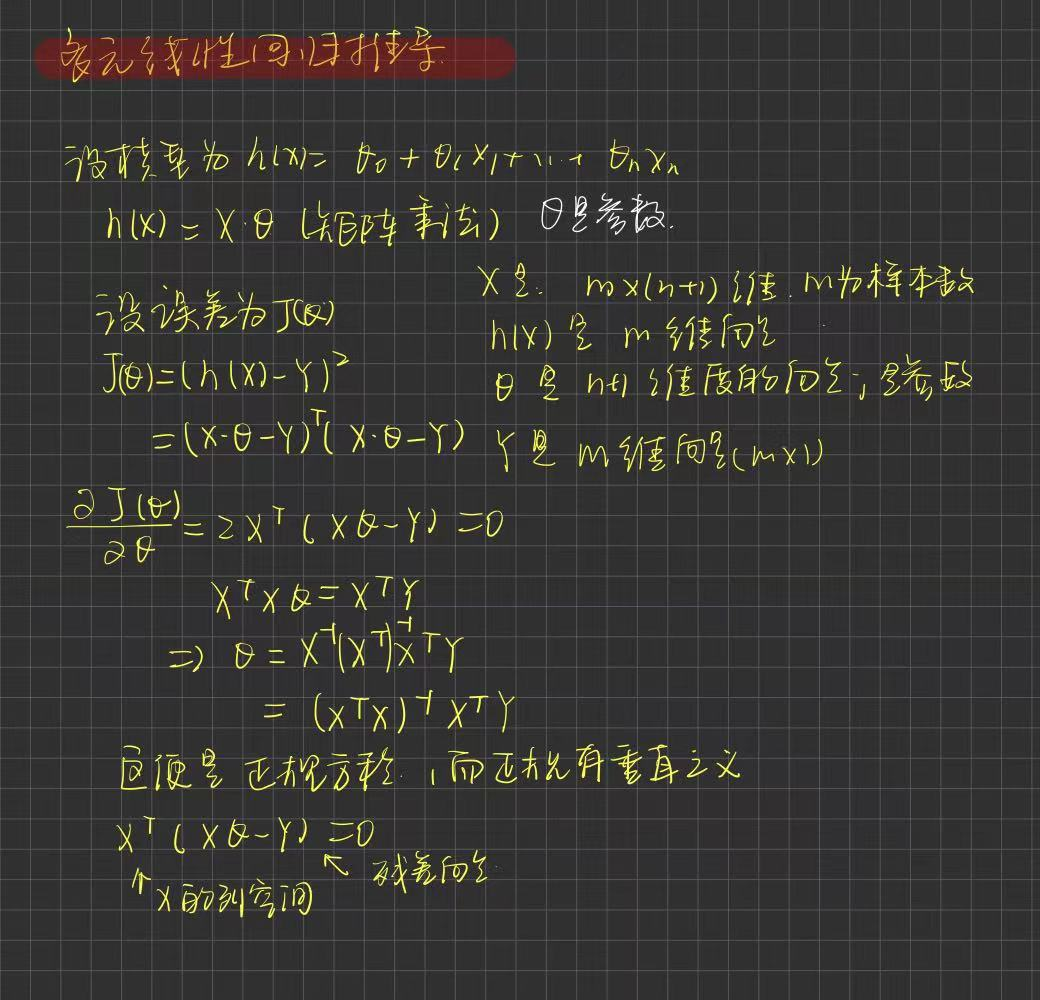 多元线性回归推导
设模型为 h(x)= θ₀ + θ₁x₁+ ... + θₙxₙ
h(X) = X·θ (矩阵乘法) θ是参数.
设误差为J(θ)
J(θ)=(h(X)-Y)²
=(X·θ-Y)ᵀ(X·θ-Y)
X是. m×(n+1)维. m为样本数
h(X)是 m维向量
θ是 n+1维度的向量, 是参数
Y是 m维向量(m×1)
∂J(θ)/∂θ = 2Xᵀ(Xθ-Y) =0
XᵀXθ = XᵀY
⇒ θ = X⁻¹(Xᵀ)⁻¹XᵀY
= (XᵀX)⁻¹XᵀY
这便是正规方程, 而正规有垂直之义
Xᵀ(Xθ-Y) =0
↑X的列空间 ↖残差向量